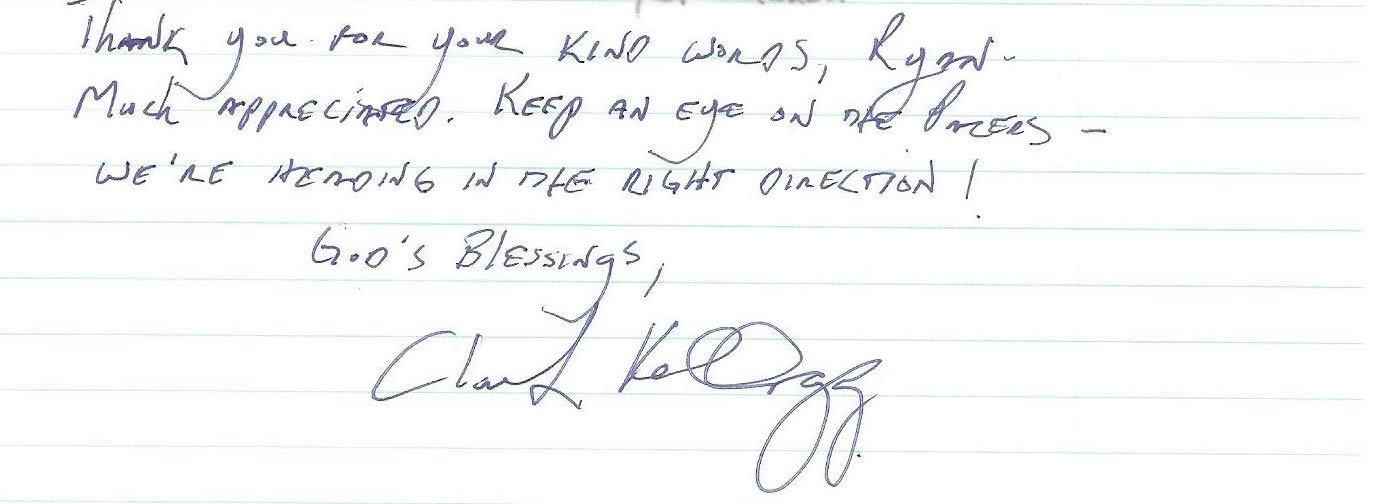 Thank you for your KIND WORDS, Ryan-
Much APPRECIATED. KEEP AN EYE ON THE PACERS –
WE'RE HEADING IN THE RIGHT DIRECTION!
GOD'S BlESSINgS,
Clark Kellogg